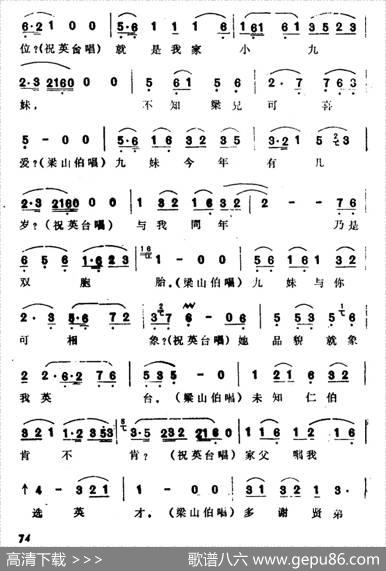 6·2 1 0 0 5·6 1 1 1 6 1 61 61 3 5 2 3
位?(祝英台唱) 就 是 我 家 小 九
2·3 2160 0 0 5 6 51 2· 7 7 6 3
妹, 不 知 梁 兄 可 喜
5 - 0 0 5·6 1 6 3 2 3 5 3·2 1 5 3
爱?(梁山伯唱) 九 妹 今 年 有 几
2·3 2160 0 0 1 3 2 1 6 3 2 2 - - 7 6
岁?(祝英台唱) 与 我 同 年 乃是
6 5 6 1·6 2 3 1 - 0 0 5 6 1 6 1 3 2
双 胞 胎。(梁山伯唱) 九 妹 与 你
2· 3 5·6 7 2 3·7 6 - 0 0 5 5 3 5 3 5
可 相 象?(祝英台唱) 她 品 貌 就 象
2 2·6·2 7 6 5 3 5 - 0 0 1 2 6 1 2
我 英 台。(梁山伯唱) 未 知 仁 伯
3 2 1 1·2 3 5 3 3·5 2 3 2 2160 0 1 2 6 1 2
肯 不 肯?(祝英台唱) 家 父 嘱 我
↑4 - 3 2 1 1 - 0 0 5 1 2 1 3·
选 英 才。(梁山伯唱) 多 谢 贤 弟
74
高清下载 >>> 歌谱八六 www.gepu86.com